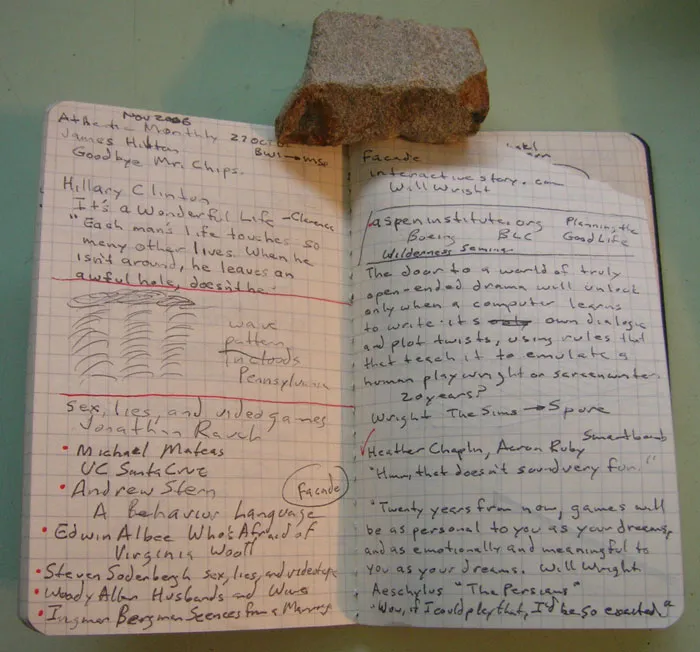 Nov 2006
Atlantic Monthly 27 Oct
James Hilton BWI → MSP
Goodbye Mr. Chips.
Hillary Clinton
It's a Wonderful Life - Clarence
"Each man's life touches so
many other lives. When he
isn't around, he leaves an
awful hole, doesn't he.
wave
pattern
in clouds
Pennsylvania
Sex, lies, and videogames
Jonathan Rauch
• Michael Mateas
UC Santa Cruz
• Andrew Stern
Facade
A Behavior Language
• Edwin Albee Who's Afraid of
Virginia Woolf
• Steven Soderbergh sex, lies, and videotape
• Woody Allen Husbands and Wives
• Ingmar Bergman Scences from a Marriage
Facade
interactivestory.com
Will Wright
aspeninstitute.org Planning the
Boeing BLC Good Life
Wilderness Seminar
The door to a world of truly
open-ended drama will unlock
only when a computer learns
to write its own dialogue
and plot twists, using rules that
that teach it to emulate a
human playwright or screenwriter.
20 years?
Wright The Sims → Spore
Heather Chaplin, Aaron Ruby Smartbomb
"Hmm, that doesn't sound very fun."
"Twenty years from now, games will
be as personal to you as your dreams,
and as emotionally and meaningful to
you as your dreams. Will Wright
Aeschylus "The Persians"
"Wow, if I could play that, I'd be so excited"